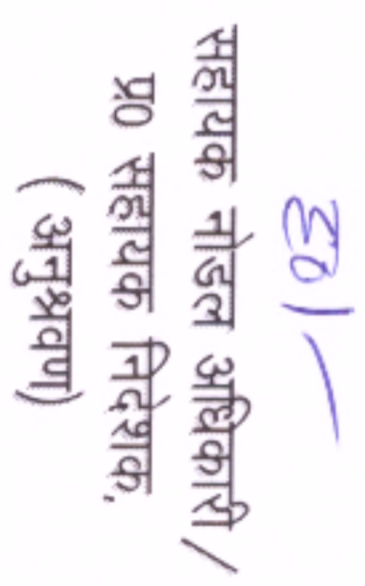 ह०/-
सहायक नोडल अधिकारी/
प्र० सहायक निदेशक,
( अनुश्रवण)